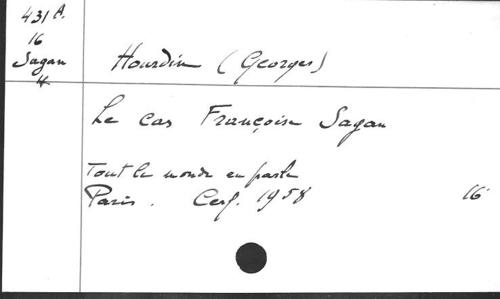 431 A.
16
Sagan
H
Hourdin (Georges)
Le cas Françoise Sagan
Tout le monde en parle
Paris. Cerf. 1958 16°